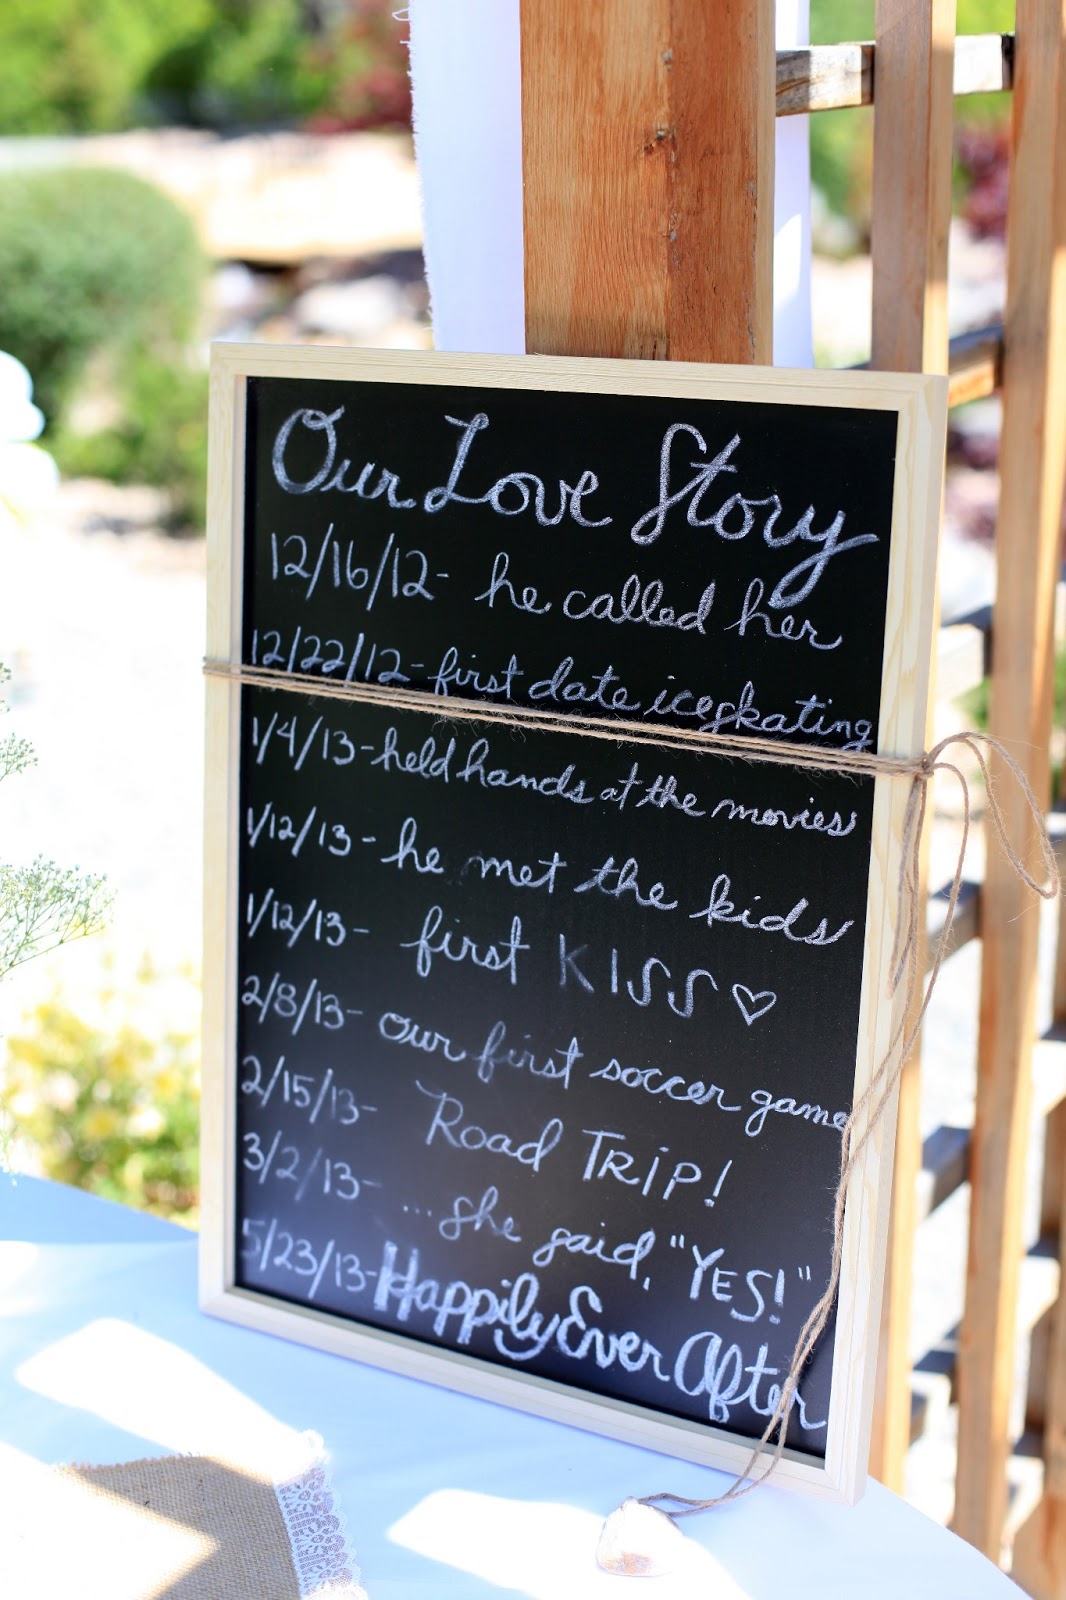 Our Love Story
12/16/12- he called her
12/22/12- first date iceskating
1/4/13- held hands at the movies
1/12/13- he met the kids
1/12/13- first KISS ♡
2/8/13- our first soccer game
2/15/13- Road TRIP!
3/2/13- ... she said, "YES!"
5/23/13- Happily Ever After